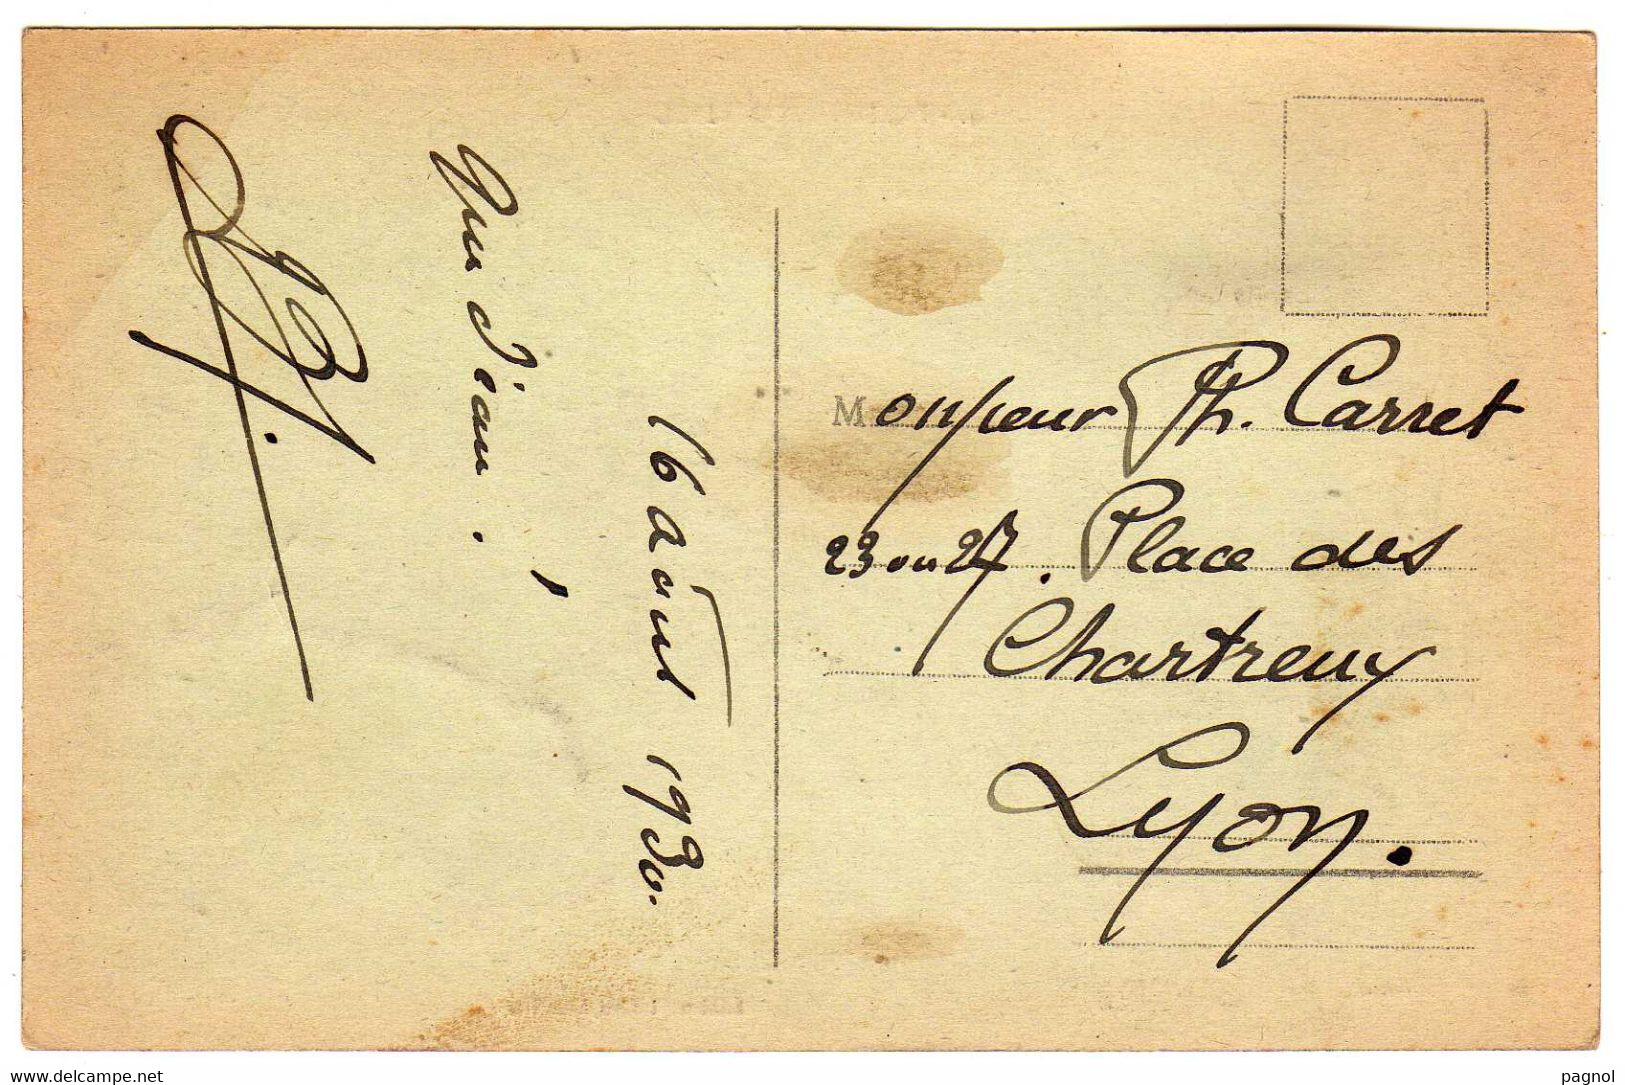 16 août 1930.
Que d'eau !
Monsieur Ph. Carret
23 ou 27. Place des
Chartreux
Lyon.
www.delcampe.net
pagnol